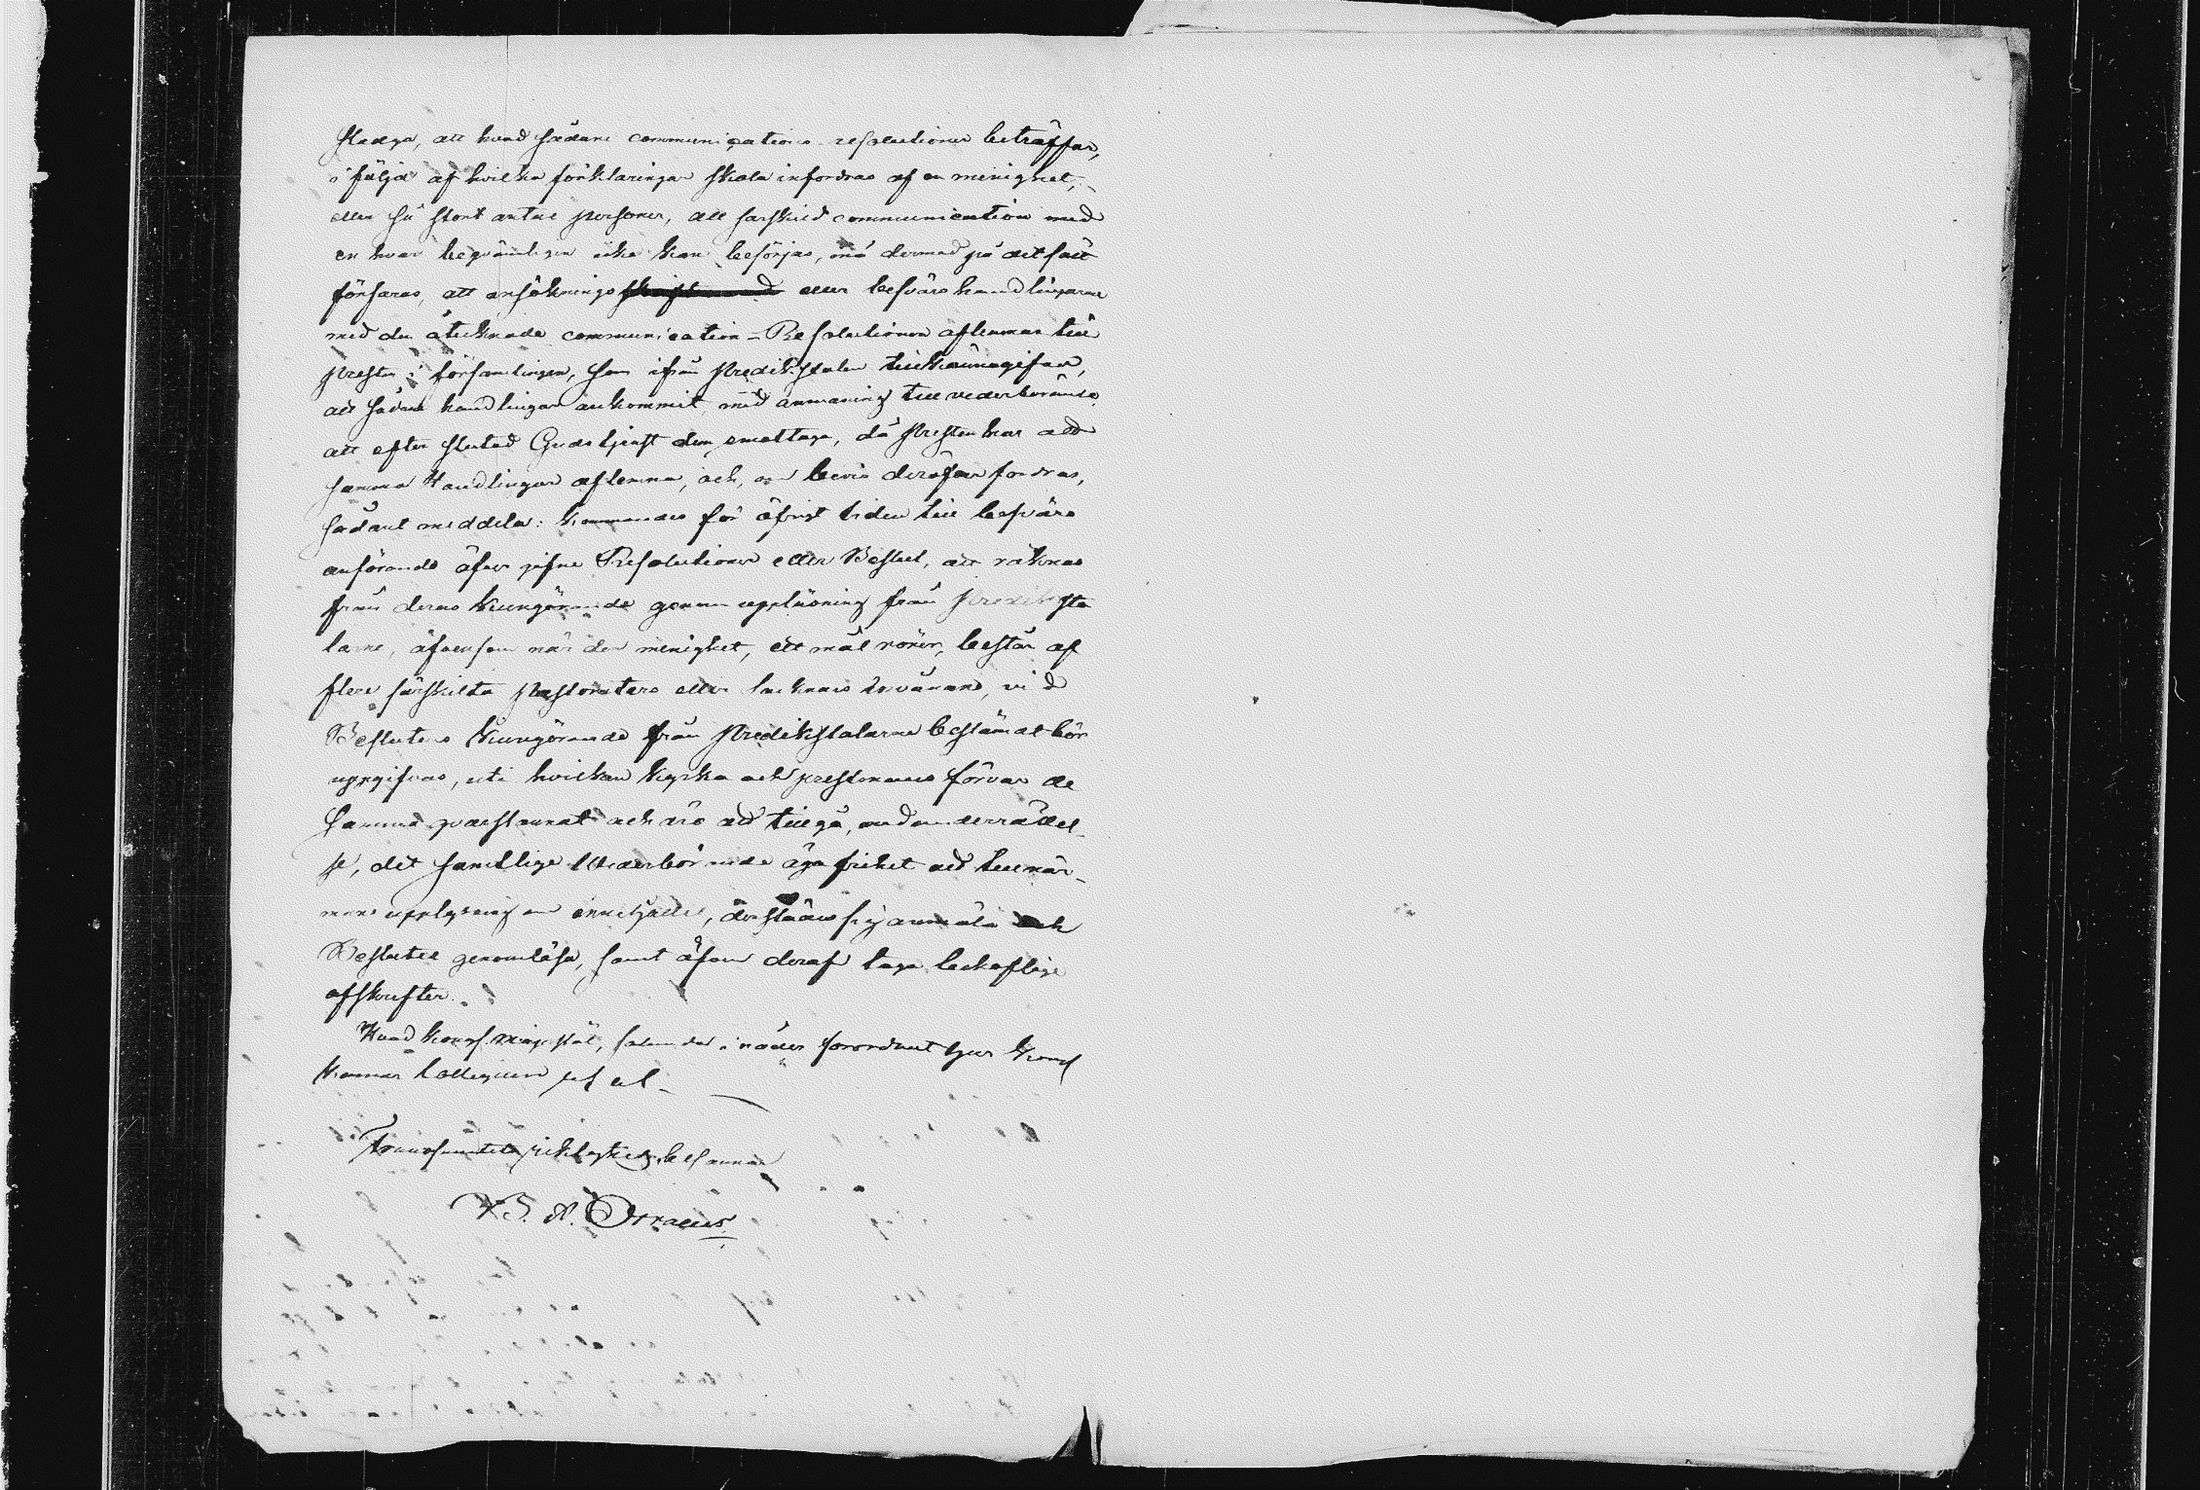 stadga, att hvad sådane communications-resolutioner beträffar,
i följd af hvilka förklaringar skola infordras af en menighet,
eller så stort antal personer, att särskild communication med
en hvar beqvämligen icke kan besörjas, må dermed på det sätt
förfaras, att ansöknings eller besvärs handlingarne
med den åtecknade communication-Resolutionen aflemnas till
presten i församlingen, som ifrån predikstolen tillkännagifver,
att sådane handlingar ankommit, med anmaning till vederbörande,
att efter slutad Gudstjenst dem emottaga, då Presten har att
samma Handlingar aflemna, och, om bevis deröfver fordras,
sådant meddela: kommandes för öfrigt tiden till besvärs
anförande öfver gifne Resolutioner eller Beslut, att räknas
från deras kungörande genom uppläsning från prediksto
larne, äfvensom när den menighet, ett mål rörer, består af
flere särskilta pastoraters eller socknars invånare, vid
Beslutens kungörande från predikstolarne bestämdt bör
uppgifvas, uti hvilken kyrka och prestmans förvar de
samma qvarstannat och äro att tillgå, med underrättel-
se, det samtlige Vederbörande äga frihet att till när-
mare upplysning om innehållet, derstädes sig anmäla och
Beslutet genomläsa, samt äfven deraf taga behöflige
afskrifter.
Hvad Kongl. Majestät, sålunda i nåder förordnat har Kongl
Kammar Collegium
Transsumtets riktighet bestyrker